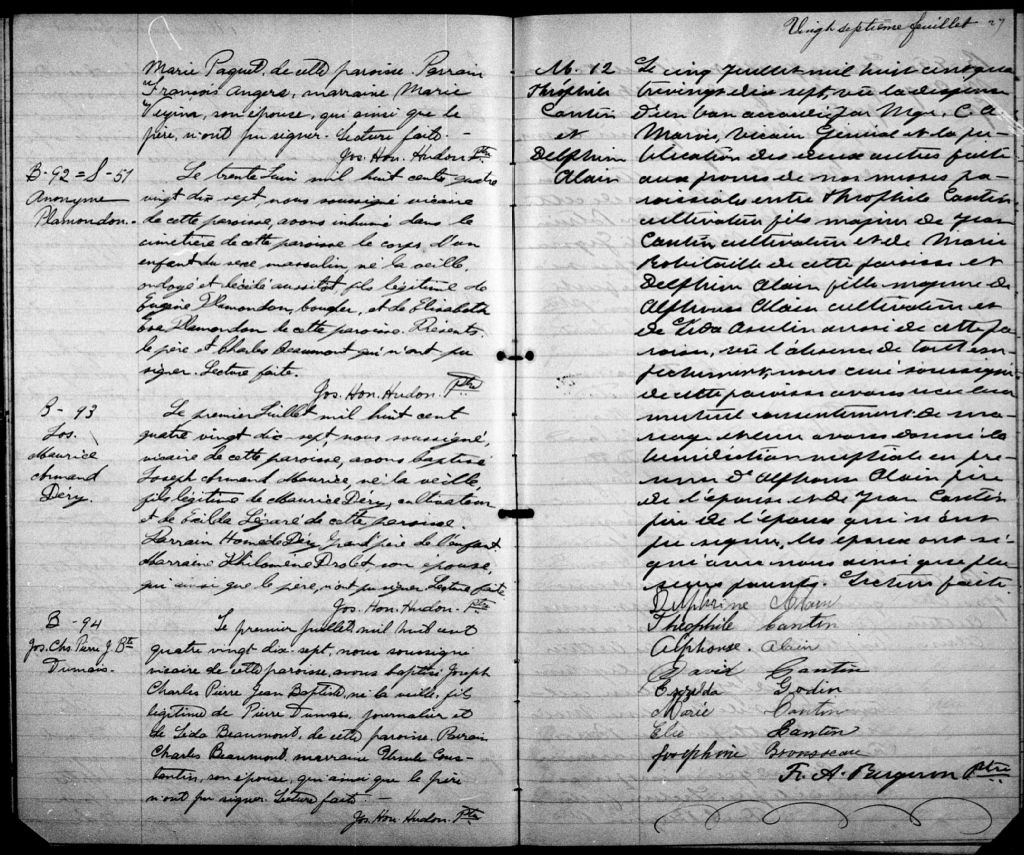 Marie Paquet, de cette paroisse. Parrain
François Angers, marraine Marie
Vézina, son épouse, qui ainsi que le
père, n'ont pu signer. Lecture faite. -
Jos. Hon. Hudon Ptre
B-92 = S-51
Anonyme
Plamondon.
Le trente Juin mil huit cent quatre
vingt dix sept, nous soussigné vicaire
de cette paroisse, avons inhumé dans le
cimetière de cette paroisse le corps d'un
enfant du sexe masculin, né la veille,
ondoyé et décédé aussitôt fils légitime de
Eugène Plamondon, boucher, et de Elisabeth
Plamondon de cette paroisse. Présents
le père et Charles Beaumont qui n'ont pu
signer. Lecture faite.
Jos. Hon. Hudon. Ptre
B - 93
Jos.
Maurice
Armand
Déry.
Le premier Juillet mil huit cent
quatre vingt dix-sept nous soussigné,
vicaire de cette paroisse, avons baptisé
Joseph Armand Maurice, né la veille,
fils légitime de Maurice Déry, cultivateur
et de Exilda Légaré de cette paroisse.
Parrain Homède Déry Grand'père de l'enfant
Marraine Philomène Drolet son épouse,
qui ainsi que le père, n'ont pu signer. Lecture faite
Jos. Hon. Hudon. Ptre
B - 94
Jos. Chs Pierre J. Bte
Dumais.
Le premier juillet, mil huit cent
quatre vingt dix-sept, nous soussigné
vicaire de cette paroisse, avons baptisé Joseph
Charles Pierre Jean Baptiste, né la veille, fils
légitime de Pierre Dumais, journalier et
de Lida Beaumont, de cette paroisse. Parrain
Charles Beaumont, marraine Ursule Cons-
tantin, son épouse, qui ainsi que le père
n'ont pu signer. Lecture faite. -
Jos. Hon. Hudon. Ptre
Vingt septième feuillet 27
M. 12
Théophile
Cantin
et
Delphine
Alain
Le cinq Juillet mil huit cent qua
tre vingt dix sept, vû la dispense
d'un ban accordée par Mgr. C. A
Marois, Vicaire Général et la pu-
blication des deux autres faite
aux prones de nos messes pa-
roissiales entre Théophile Cantin
cultivateur fils majeur de Jean
Cantin cultivateur et de Marie
Robitaille de cette paroisse et
Delphine Alain fille majeure de
Alphonse Alain cultivateur et
de Lida Asselin aussi de cette pa-
roisse, vû l'absence de tout em-
pêchement, nous curé soussigné
de cette paroisse avons reçu leur
mutuel consentement de ma-
riage et leur avons donné la
bénédiction nuptiale en pré-
sence d'Alphonse Alain père
de l'épouse et de Jean Cantin
père de l'époux qui n'ont
pu signer, les époux ont si-
gné avec nous ainsi que plu-
sieurs parents. Lecture faite
Delphine Alain
Théophile Cantin
Alphonse. Alain
David Cantin
Godin
Marie Cantin
Elie Cantin
Joséphine Brousseau
F. A. Bergeron Ptre